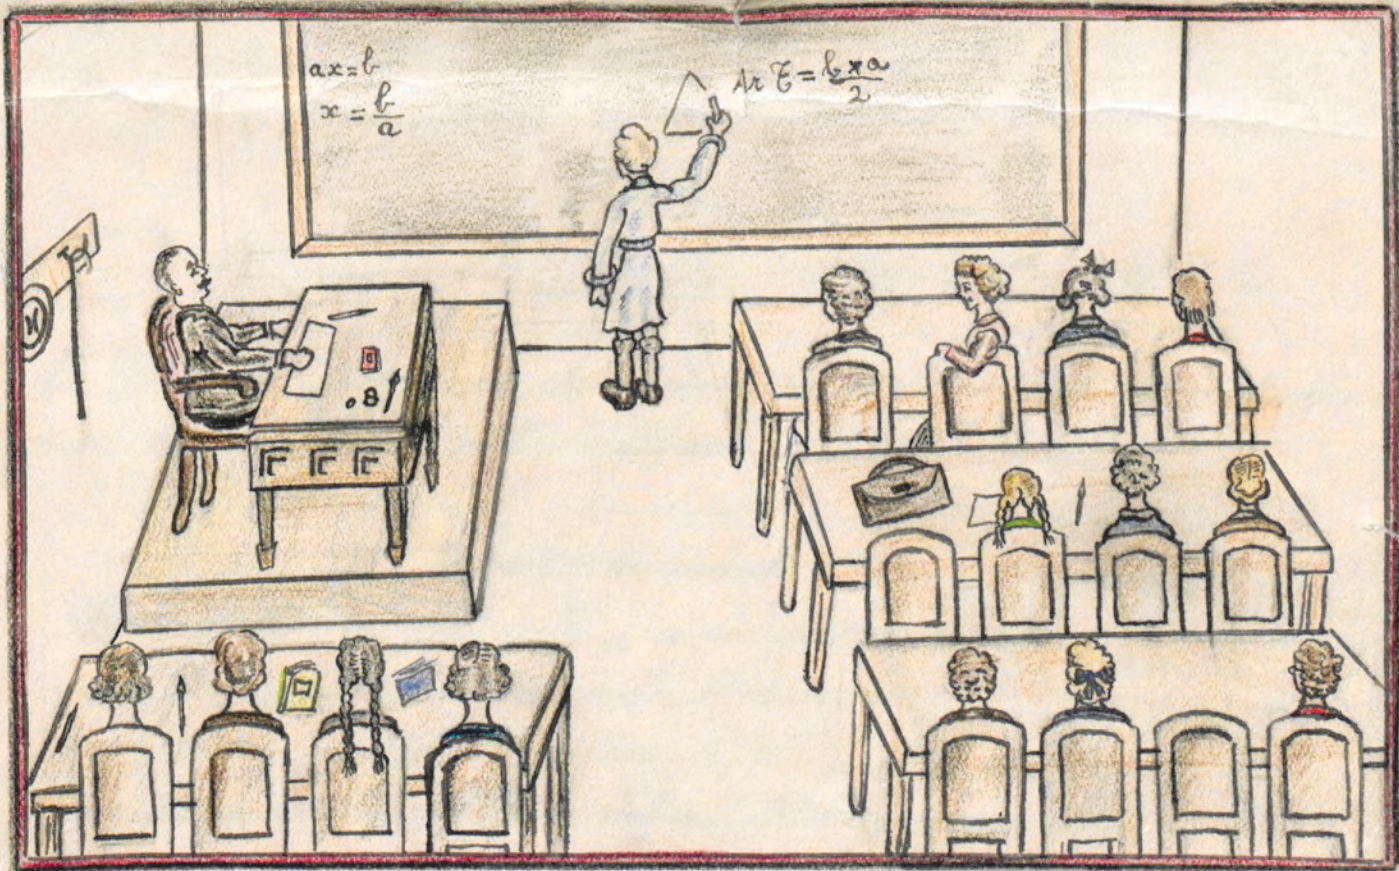 ax=b
x = b/a
Ar T = b×a/2